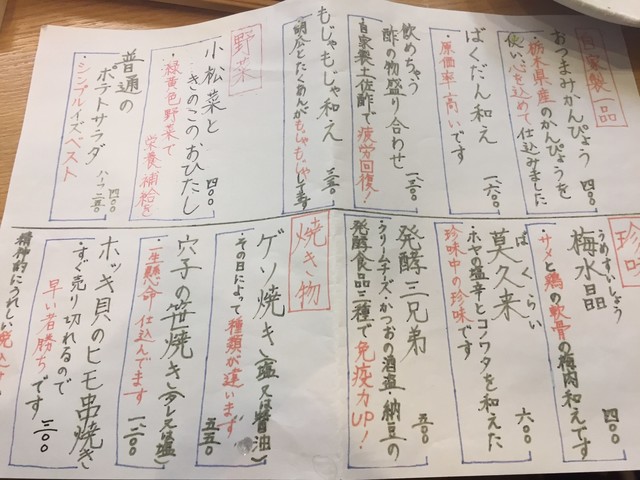 自家製一品
おつまみかんぴょう 四〇〇
・栃木県産のかんぴょうを
使い心を込めて仕込みました
ばくだん和え 一、六〇〇
・原価率高いです
飲めちゃう
酢の物盛り合わせ
・自家製土佐酢で疲労回復！
もじゃもじゃ和え 三五〇
(胡瓜とたくあんがもじゃもじゃしてます)
野菜
小松菜と
きのこのおひたし 四〇〇
・緑黄色野菜で
栄養補給を
普通の
ポテトサラダ 四〇〇
ハーフ二五〇
・シンプルイズベスト
珍味
うめすいしょう
梅水晶 四〇〇
・サメと鶏の軟骨の梅肉和えです
ばくらい
莫久来 六〇〇
・ホヤの塩辛とコノワタを和えた
珍味中の珍味です
発酵三兄弟 五〇〇
・クリームチーズ・かつおの酒盗・納豆の
発酵食品三種で免疫力UP！
焼き物
ゲソ焼き(塩又は醤油) 五五〇
・その日によって種類が違います
穴子の笹焼き(タレ又は塩)
一生懸命仕込んでます
ホッキ貝のヒモ串焼き 三〇〇
・すぐ売り切れるので
早い者勝ちです
精神的にうれしい